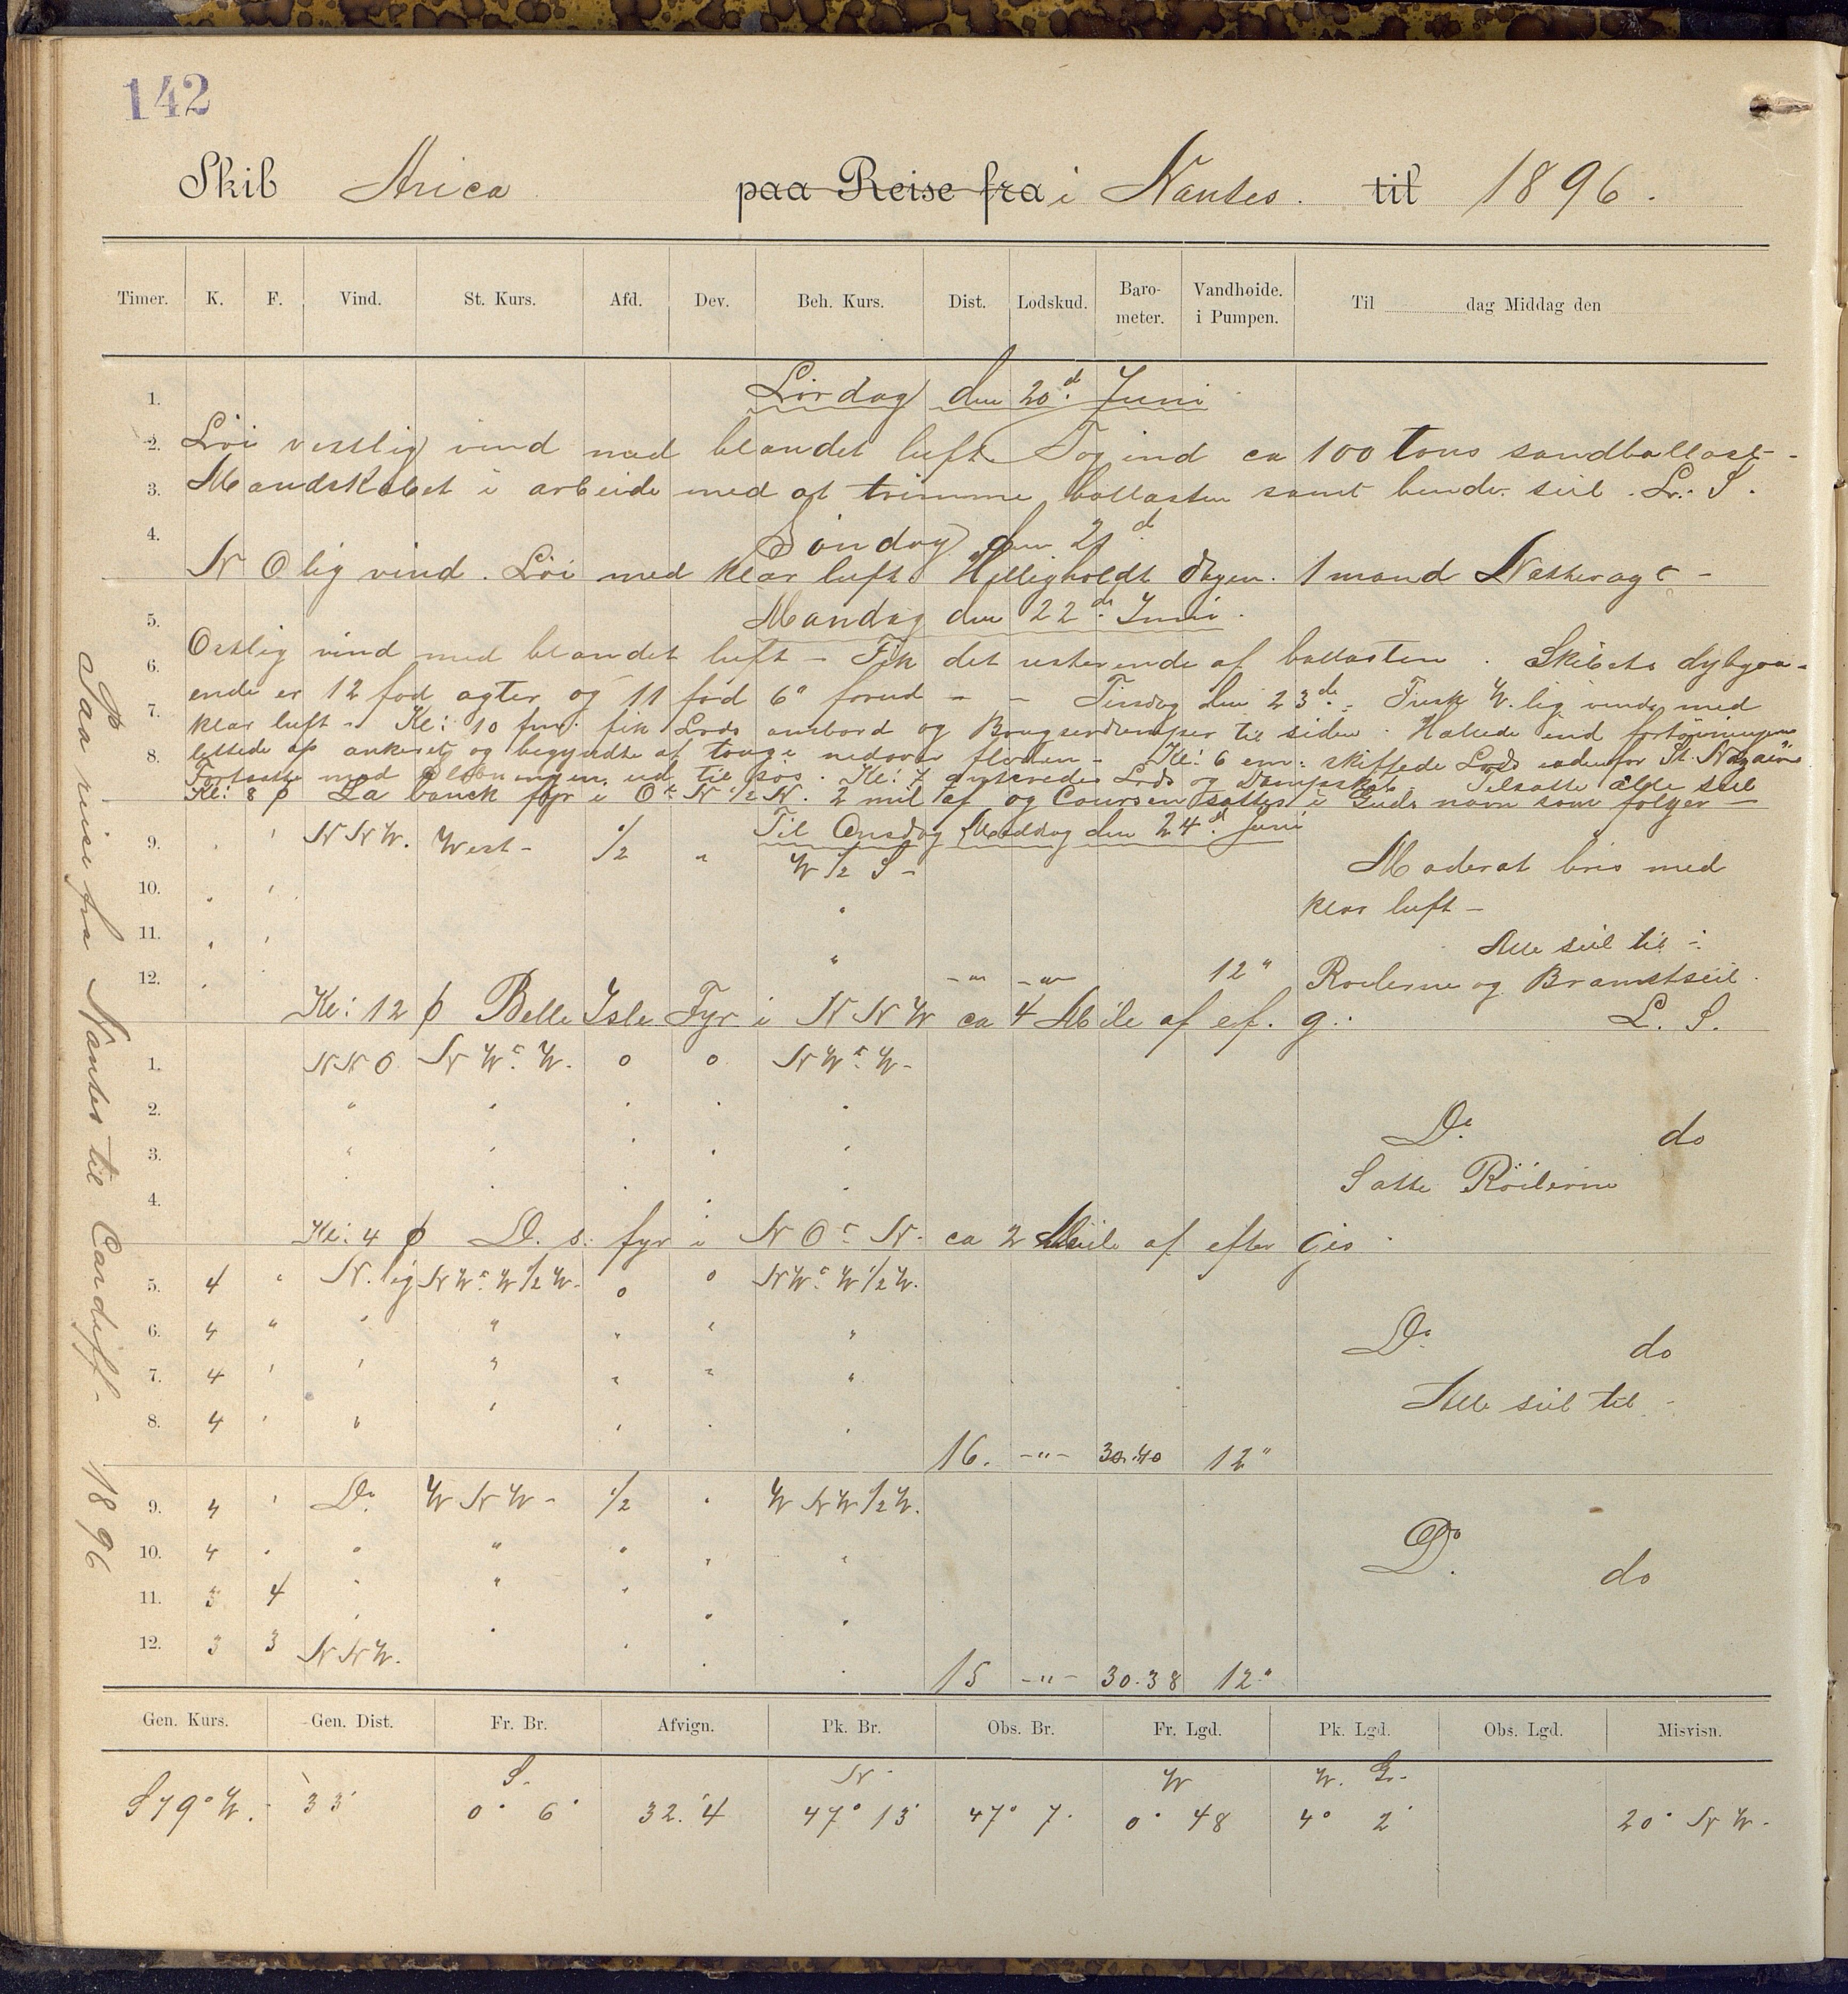 142
Skib Arica paa Reise fra i Nantes. til 1896.
Timer. K. F. Vind. St. Kurs. Afd. Dev. Beh. Kurs. Dist. Lodskud. Baro-meter. Vandhøide. i Pumpen. Til dag Middag den
1. Lördag den 20d. Juni
2. Löi vestlig vind med blandet luft. Tog ind ca 100 tons sandballast -
3. Mandskabet i arbeide med at trimme ballasten samt bende seil. L. S.
4. Söndag den 21d
N O lig vind. Löi med klar luft Helligholdt dagen. 1 mand Nattevagt -
5. Mandag den 22de Juni.
6. Ostlig vind med blandet luft - Fik det resterende af ballasten. Skibets dybgaa-
ende er 12 fod agter og 11 fod 6" forud - - Tirsdag den 23de. Frisk W. lig vind med
7. klar luft - Kl: 10 fm. fik Lods ombord og Bougserdamper til siden. Hallede ind fortöiningerne
8. lettede op ankeret og begyndte at touge nedover floden - Kl: 6 em: skiftede Lods udenfor St. Nazaire
Fortsatte med ud til sös. Kl: 7 Lods og Dampskib. Tilsatte alle seil
Kl: 8 ф La banck fyr i Ot N 1/2 N. 2 mil af og Coursen sattes i Guds navn som fölger -
Til Onsdag Middag den 24d Juni
9. " ' NNW. West - 1/2 " W 1/2 S - Moderat bris med
10. " ' " klar luft -
11. " ' " Alle seil til ÷
12. " -"- -"- 12" Roilerne og Bramstseil.
Kl: 12 ф Belle Isle Fyr i N N W ca 4 Mile af ef. g. L. S.
1. NNO NWtW. 0 0 NWtW-
2. " " " " " Do do
3. " " " " " Satte Röilerne
4. " " " "
Kl: 4 ф D. s. fyr i N Ot N. ca 2 Mile af efter Gis.
5. 4 " N. lig NWtW 1/2 W. 0 0 NWtW 1/2 W.
6. 4 " " " " " " Do do
7. 4 ' ' " " " " Alle seil til -
8. 4 ' " ' ' " " 16. -"- 30.40 12"
9. 4 ' Do WNW - 1/2 " WNW 1/2 W.
10. 4 " " " " " " Do do
11. 3 4 " " " " "
12. 3 3 NNW. " " " " 15 -"- 30.38 12"
Paa reise fra Nantes til Cardiff - 1896
Gen. Kurs. Gen. Dist. Fr. Br. Afvign. Pk. Br. Obs. Br. Fr. Lgd. Pk. Lgd. Obs. Lgd. Misvisn.
S. N. W W. Gr.
S 79° W. 33' 0° 6' 32.'4 47° 13' 47° 7' 0° 48 4° 2' 20° N W.